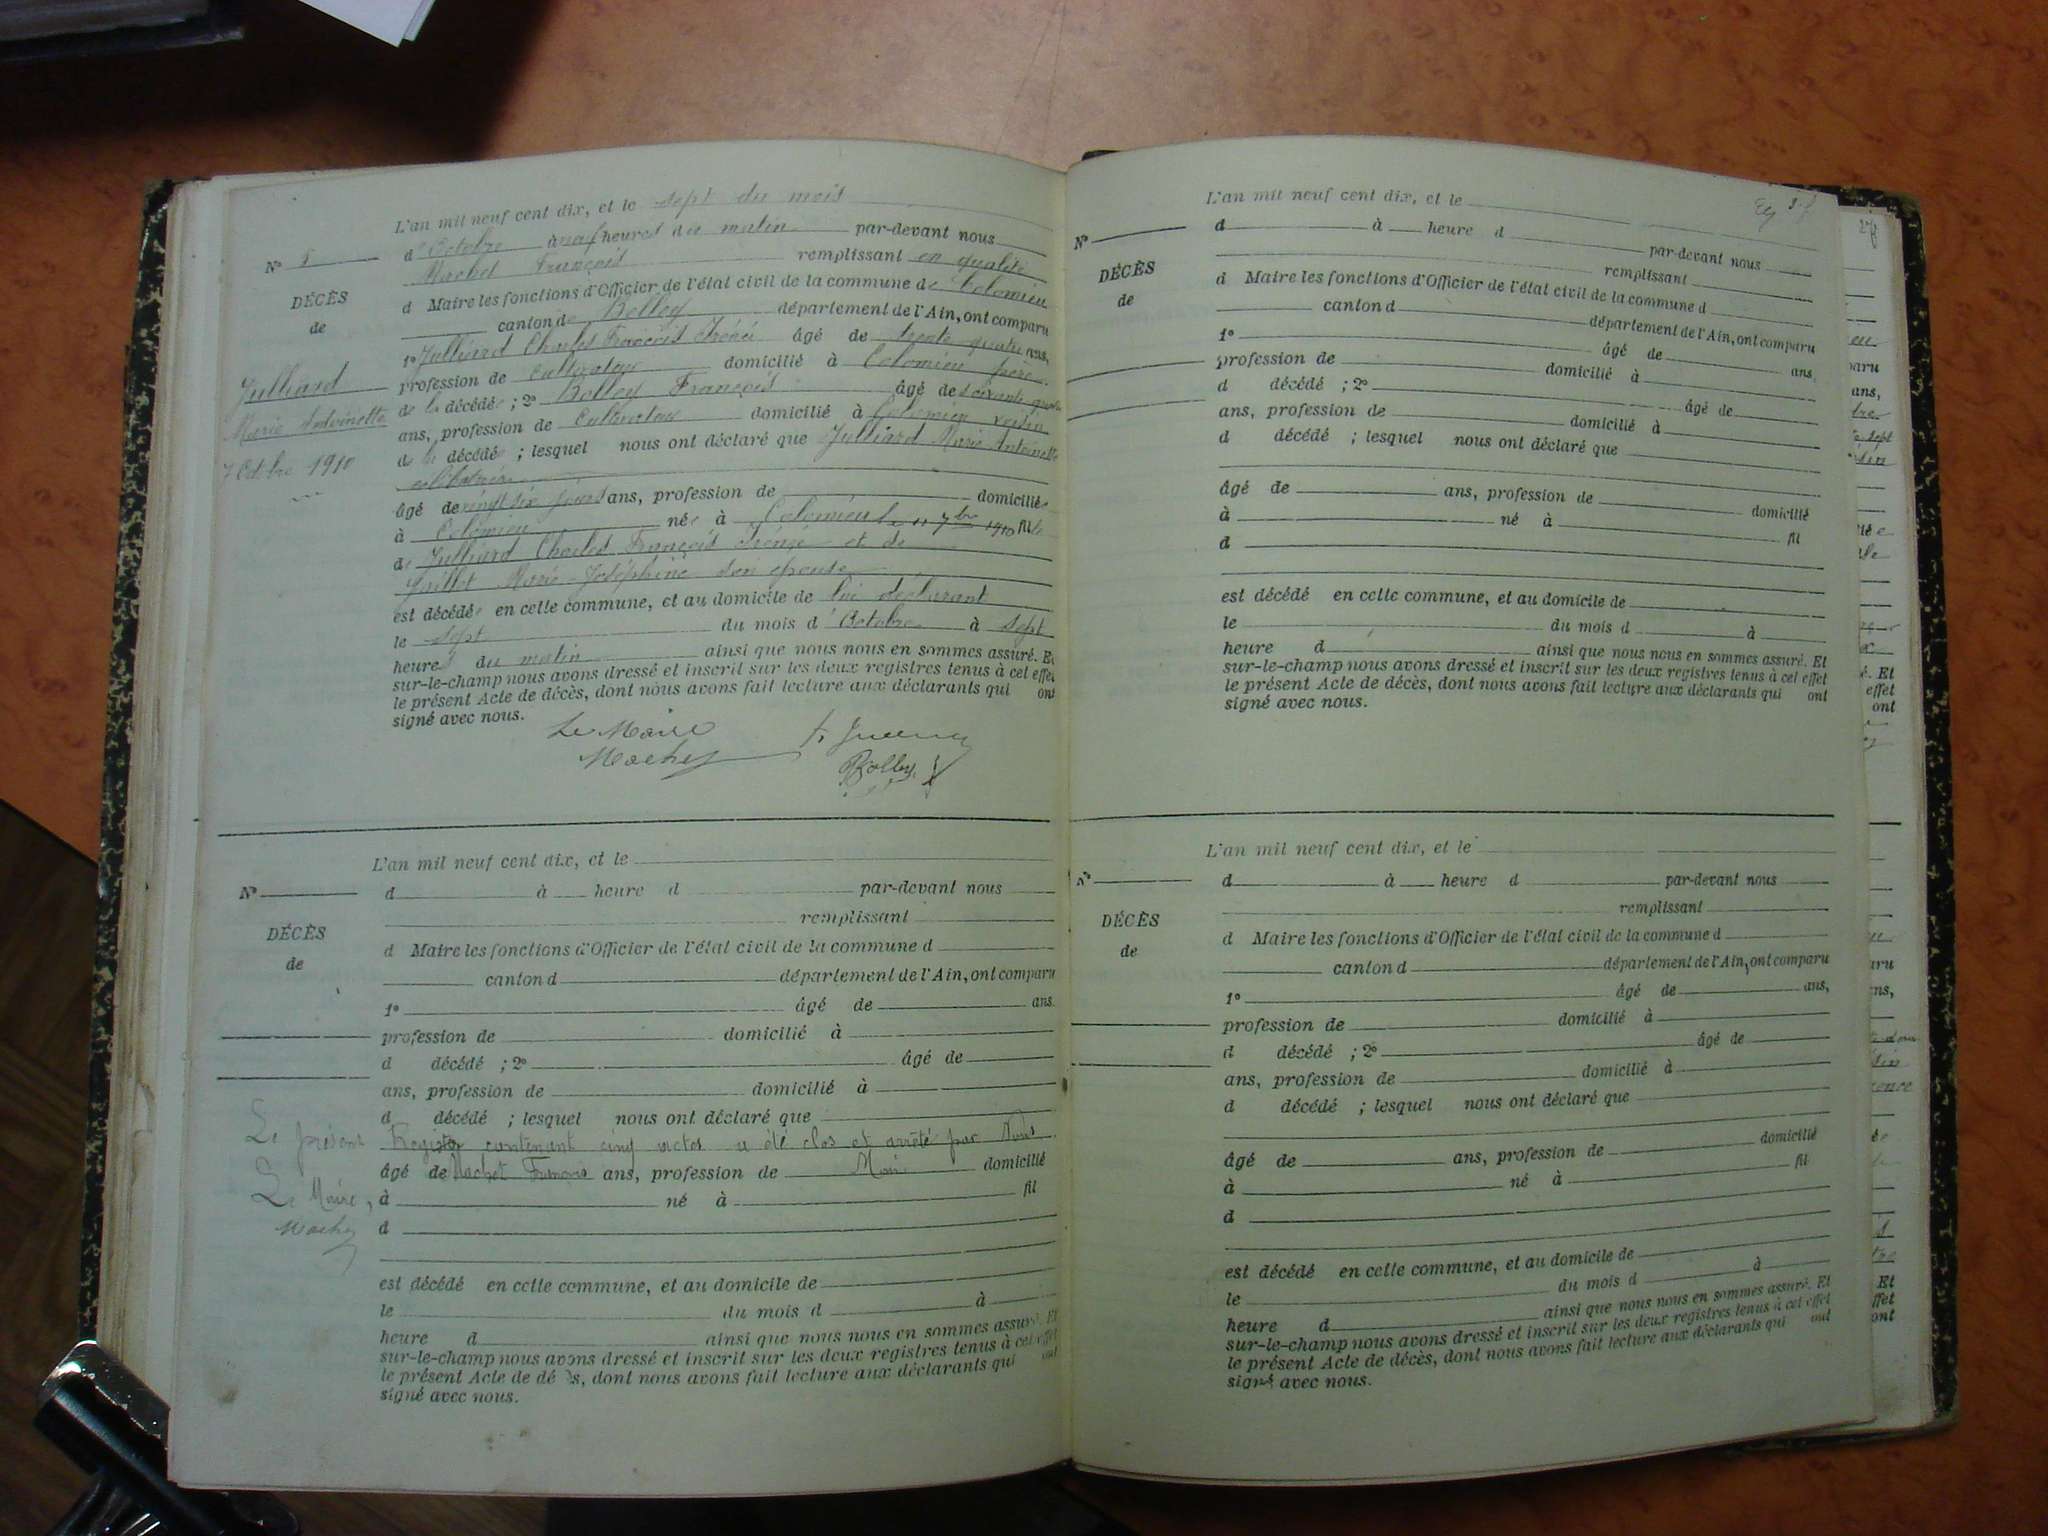 L'an mil neuf cent dix, et le sept du mois
d'Octobre à neuf heures du matin par-devant nous
Nº 5
Machet François remplissant en qualité
DÉCÈS
d Maire les fonctions d'Officier de l'état civil de la commune de Colomieu
de
canton de Belley département de l'Ain, ont comparu
1º Julliard Charles François Irénée âgé de trente quatre ans,
profession de Cultivateur domicilié à Colomieu père
Julliard
Marie Antoinette
7 Octbre 1910
de la décédée ; 2º Bolley François âgé de soixante quatre
ans, profession de Cultivateur domicilié à Colomieu voisin
de la décédée ; lesquel nous ont déclaré que Julliard Marie Antoinette
célibataire
âgé de vingt six jours ans, profession de domicilié
à Colomieu née à Colomieu le 11 7bre 1910 fille
de Julliard Charles François Irénée et de
Marie Joséphine son épouse
est décédée en cette commune, et au domicile de lui déclarant
le sept du mois d'Octobre à sept
heures du matin ainsi que nous nous en sommes assuré. Et
sur-le-champ nous avons dressé et inscrit sur les deux registres tenus à cet effet
le présent Acte de décès, dont nous avons fait lecture aux déclarants qui ont
signé avec nous.
Le Maire
Machet
Bolley
L'an mil neuf cent dix, et le
Nº
d à heure d par-devant nous
remplissant
DÉCÈS
de
d Maire les fonctions d'Officier de l'état civil de la commune d
canton d département de l'Ain, ont comparu
1º âgé de ans.
profession de domicilié à
d décédé ; 2º âgé de
ans, profession de domicilié à
d décédé ; lesquel nous ont déclaré que
Le présent Registre contenant cinq actes a été clos et arrêté par Nous
âgé de Machet François ans, profession de Maire domicilié
Le Maire, à né à fil
Machet d
est décédé en cette commune, et au domicile de
le du mois d à
heure d ainsi que nous nous en sommes assuré. Et
sur-le-champ nous avons dressé et inscrit sur les deux registres tenus à cet effet
le présent Acte de décès, dont nous avons fait lecture aux déclarants qui ont
signé avec nous.
L'an mil neuf cent dix, et le
Nº
d à heure d par-devant nous
remplissant
DÉCÈS
de
d Maire les fonctions d'Officier de l'état civil de la commune d
canton d département de l'Ain, ont comparu
1º âgé de ans,
profession de domicilié à
d décédé ; 2º âgé de
ans, profession de domicilié à
d décédé ; lesquel nous ont déclaré que
âgé de ans, profession de domicilié
à né à fil
d
est décédé en cette commune, et au domicile de
le du mois d à
heure d ainsi que nous nous en sommes assuré. Et
sur-le-champ nous avons dressé et inscrit sur les deux registres tenus à cet effet
le présent Acte de décès, dont nous avons fait lecture aux déclarants qui ont
signé avec nous.
L'an mil neuf cent dix, et le
Nº
d à heure d par-devant nous
remplissant
DÉCÈS
de
d Maire les fonctions d'Officier de l'état civil de la commune d
canton d département de l'Ain, ont comparu
1º âgé de ans,
profession de domicilié à
d décédé ; 2º âgé de
ans, profession de domicilié à
d décédé ; lesquel nous ont déclaré que
âgé de ans, profession de domicilié
à né à fil
d
est décédé en cette commune, et au domicile de
le du mois d à
heure d ainsi que nous nous en sommes assuré. Et
sur-le-champ nous avons dressé et inscrit sur les deux registres tenus à cet effet
le présent Acte de décès, dont nous avons fait lecture aux déclarants qui ont
signé avec nous.